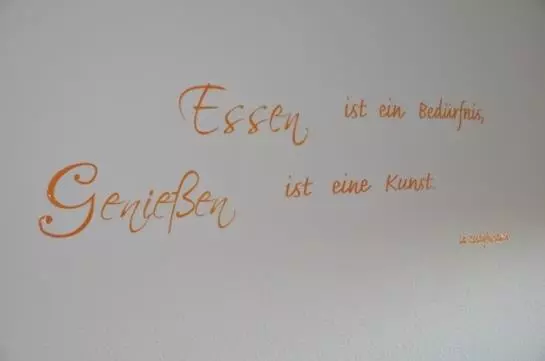 Essen ist ein Bedürfnis,
Genießen ist eine Kunst.